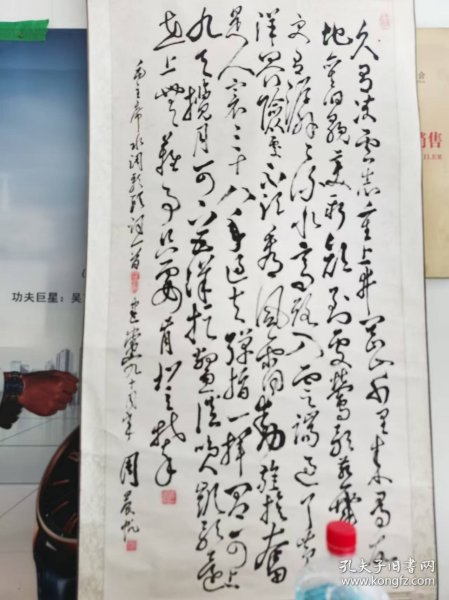 久有凌云志重上井冈山千里来寻故
地旧貌变新颜到处莺歌燕舞
更有潺潺流水高路入云端过了黄
洋界险处不须看风雷动旌旗奋
是人寰三十八年过去弹指一挥间可上
九天揽月可下五洋捉鳖谈笑凯歌还
世上无难事只要肯登攀
毛主席水调歌头词一首 建党九十周年 周
功夫巨星：吴
会
销售
孔夫子旧书网
kongfz.com